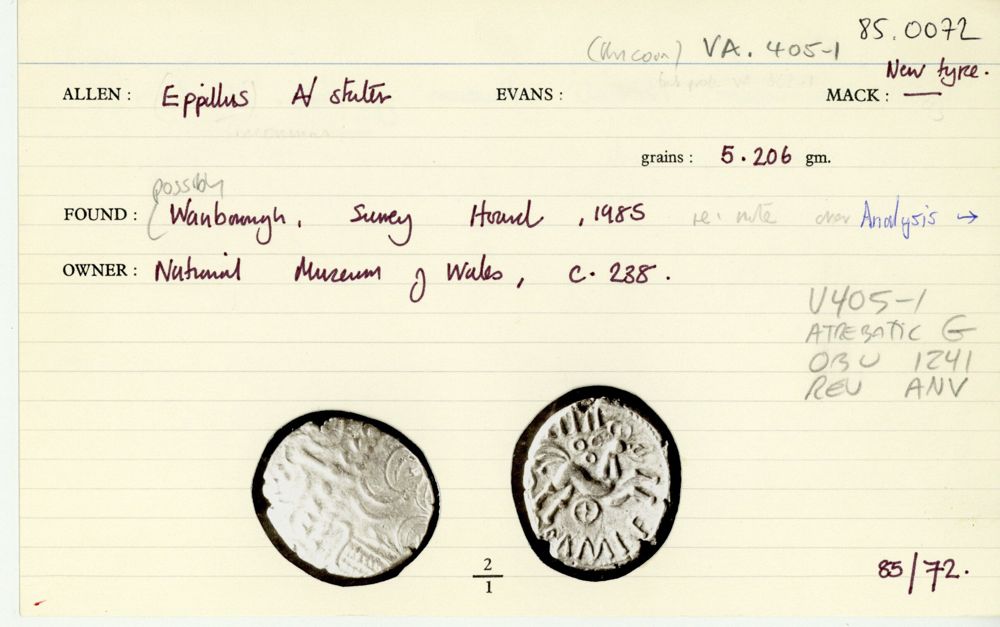 85.0072
(Uncertain) VA. 405-1
New type.
ALLEN : Eppillus A/ stater EVANS : MACK : —
grains : 5.206 gm.
possibly
FOUND : Wanborough, Surrey Hoard, 1985 re: note over Analysis →
OWNER : National Museum of Wales, C. 238.
V405-1
ATREBATIC G
OBV 1241
REV ANV
2
1
85/72.